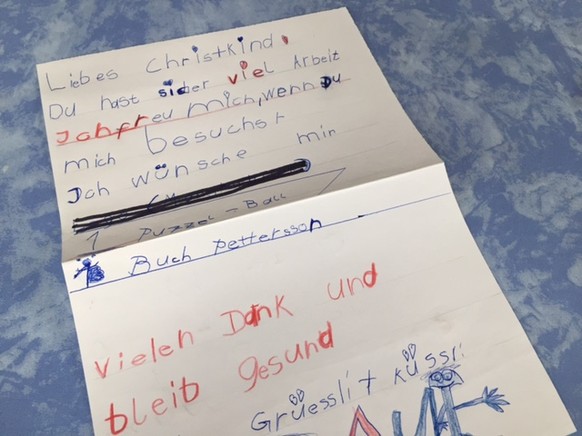 Liebes Christkind,
Du hast sider viel Arbeit
Jchfreu mich, wenn Du
mich besuchst
Jch wünsche mir
1 Puzzel-Ball
Buch Pettersson
vielen Dank und
bleib gesund
Grüessli + küssli